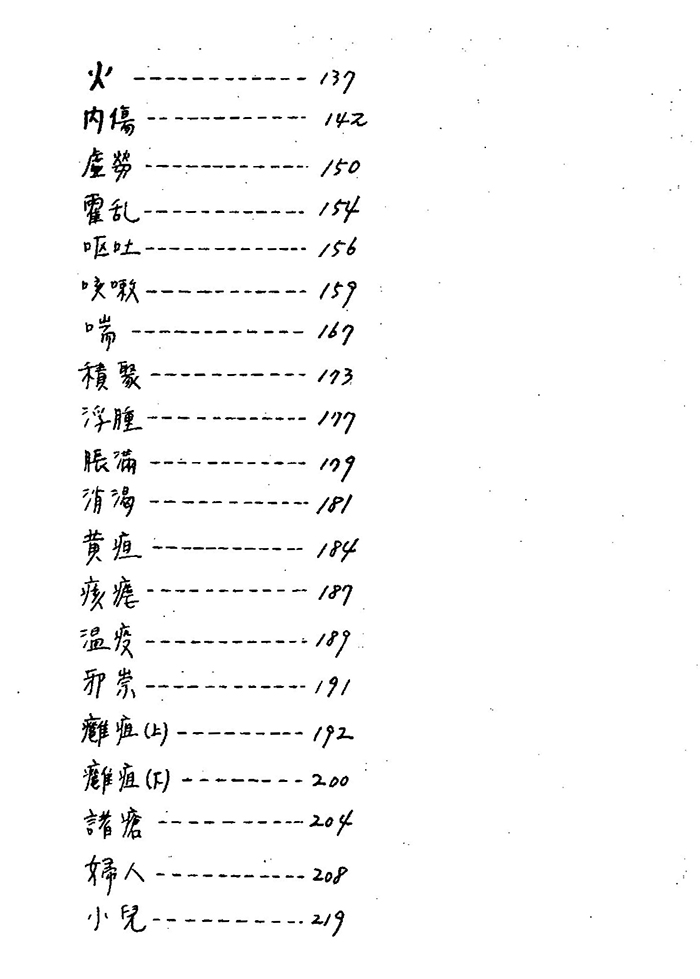 火 ------------ 137
内傷 ------------ 142
虛勞 ------------ 150
霍乱 ------------ 154
呕吐 ------------ 156
咳嗽 ------------ 159
喘 ------------ 167
積聚 ------------ 173
浮腫 ------------ 177
脹滿 ------------ 179
消渴 ------------ 181
黄疸 ------------ 184
痎瘧 ------------ 187
温疫 ------------ 189
邪祟 ------------ 191
癰疽(上) --------- 192
癰疽(下) -------- 200
諸瘡 ---------- 204
婦人 ----------- 208
小兒 ----------- 219